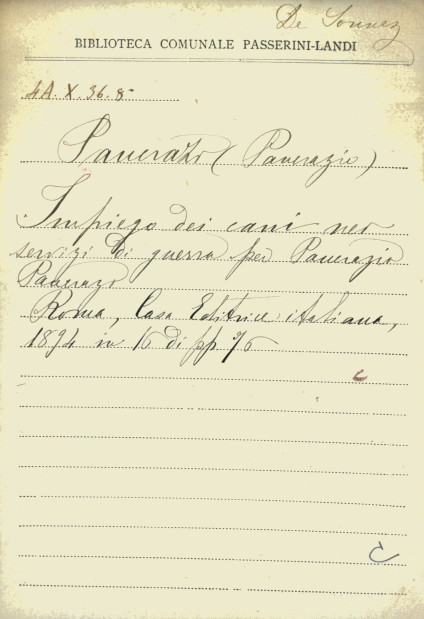 De Sonnez
BIBLIOTECA COMUNALE PASSERINI-LANDI
4A. X. 36. 8
Panerazi (Panerazio)
Impiego dei cani nei
servizi di guerra per Panerazio
Panerazi
Roma, Casa Editrice italiana,
1894 in 16 di pp 76
c
C